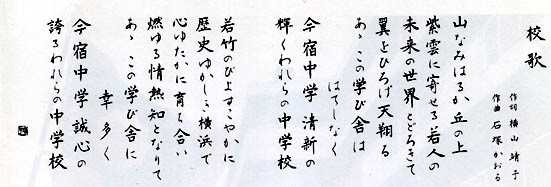 校歌
作詞 横山靖子
作曲 石塚かおる
山なみはるか丘の上
紫雲に寄せる若人の
未来の世界とどろきて
翼をひろげ天翔る
あゝこの学び舎は
はてしなく
今宿中学 清新の
輝くわれらの中学校
若竹のびよすこやかに
歴史ゆかしき横浜で
心ゆたかに育ち合い
燃ゆる情熱知となりて
あゝこの学び舎に
幸多く
今宿中学 誠心の
誇るわれらの中学校